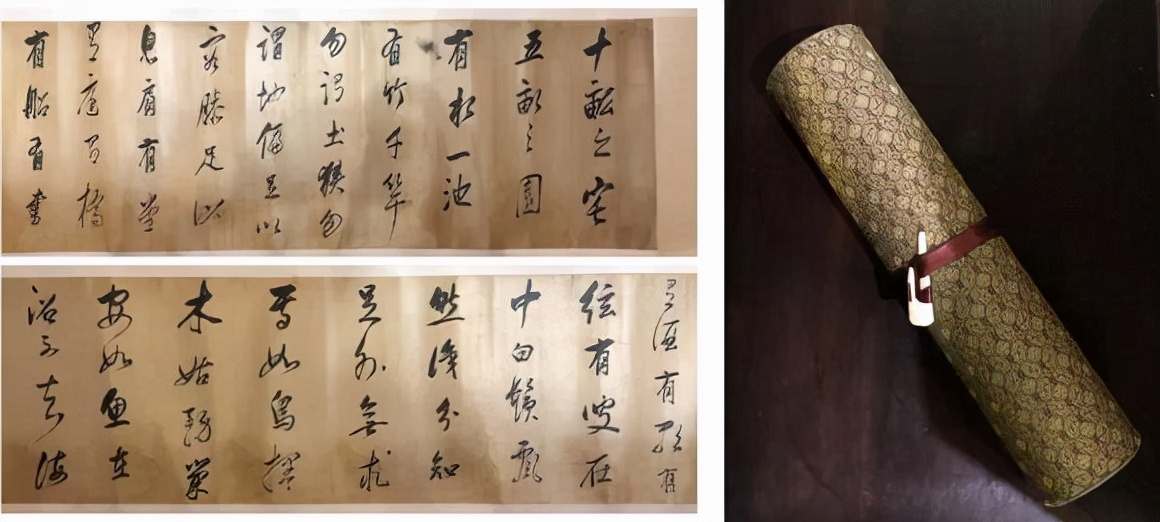 十畝之宅
五畝之園
有水一池
有竹千竿
勿謂土狹勿
謂地偏足以
容膝足以
息肩有堂
有庭有橋
有船有書
有酒有歌有
絃有叟在
中白鬚飄
然識分知
足外無求
焉如鳥擇
木姑務巢
安如魚在
沼不知海